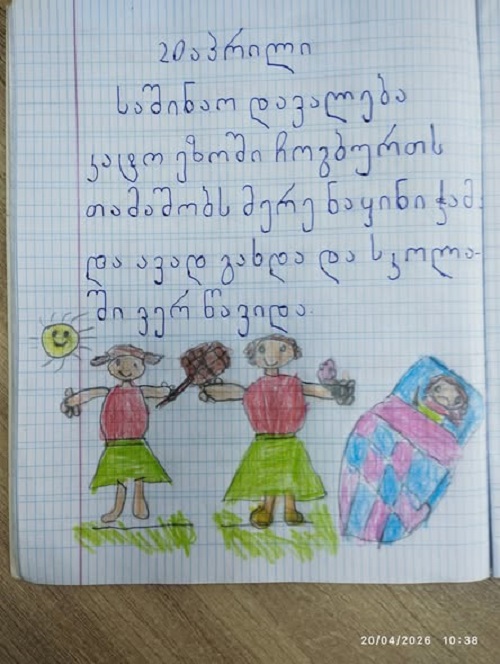 20 აპრილი
საშინაო დავალება
კატო ეზოში ჩოგბურთს
თამაშობს მერე ნაყინი ჭამ.
და ავად გახდა და სკოლა-
ში ვერ წავიდა.
20/04/2026 10:38